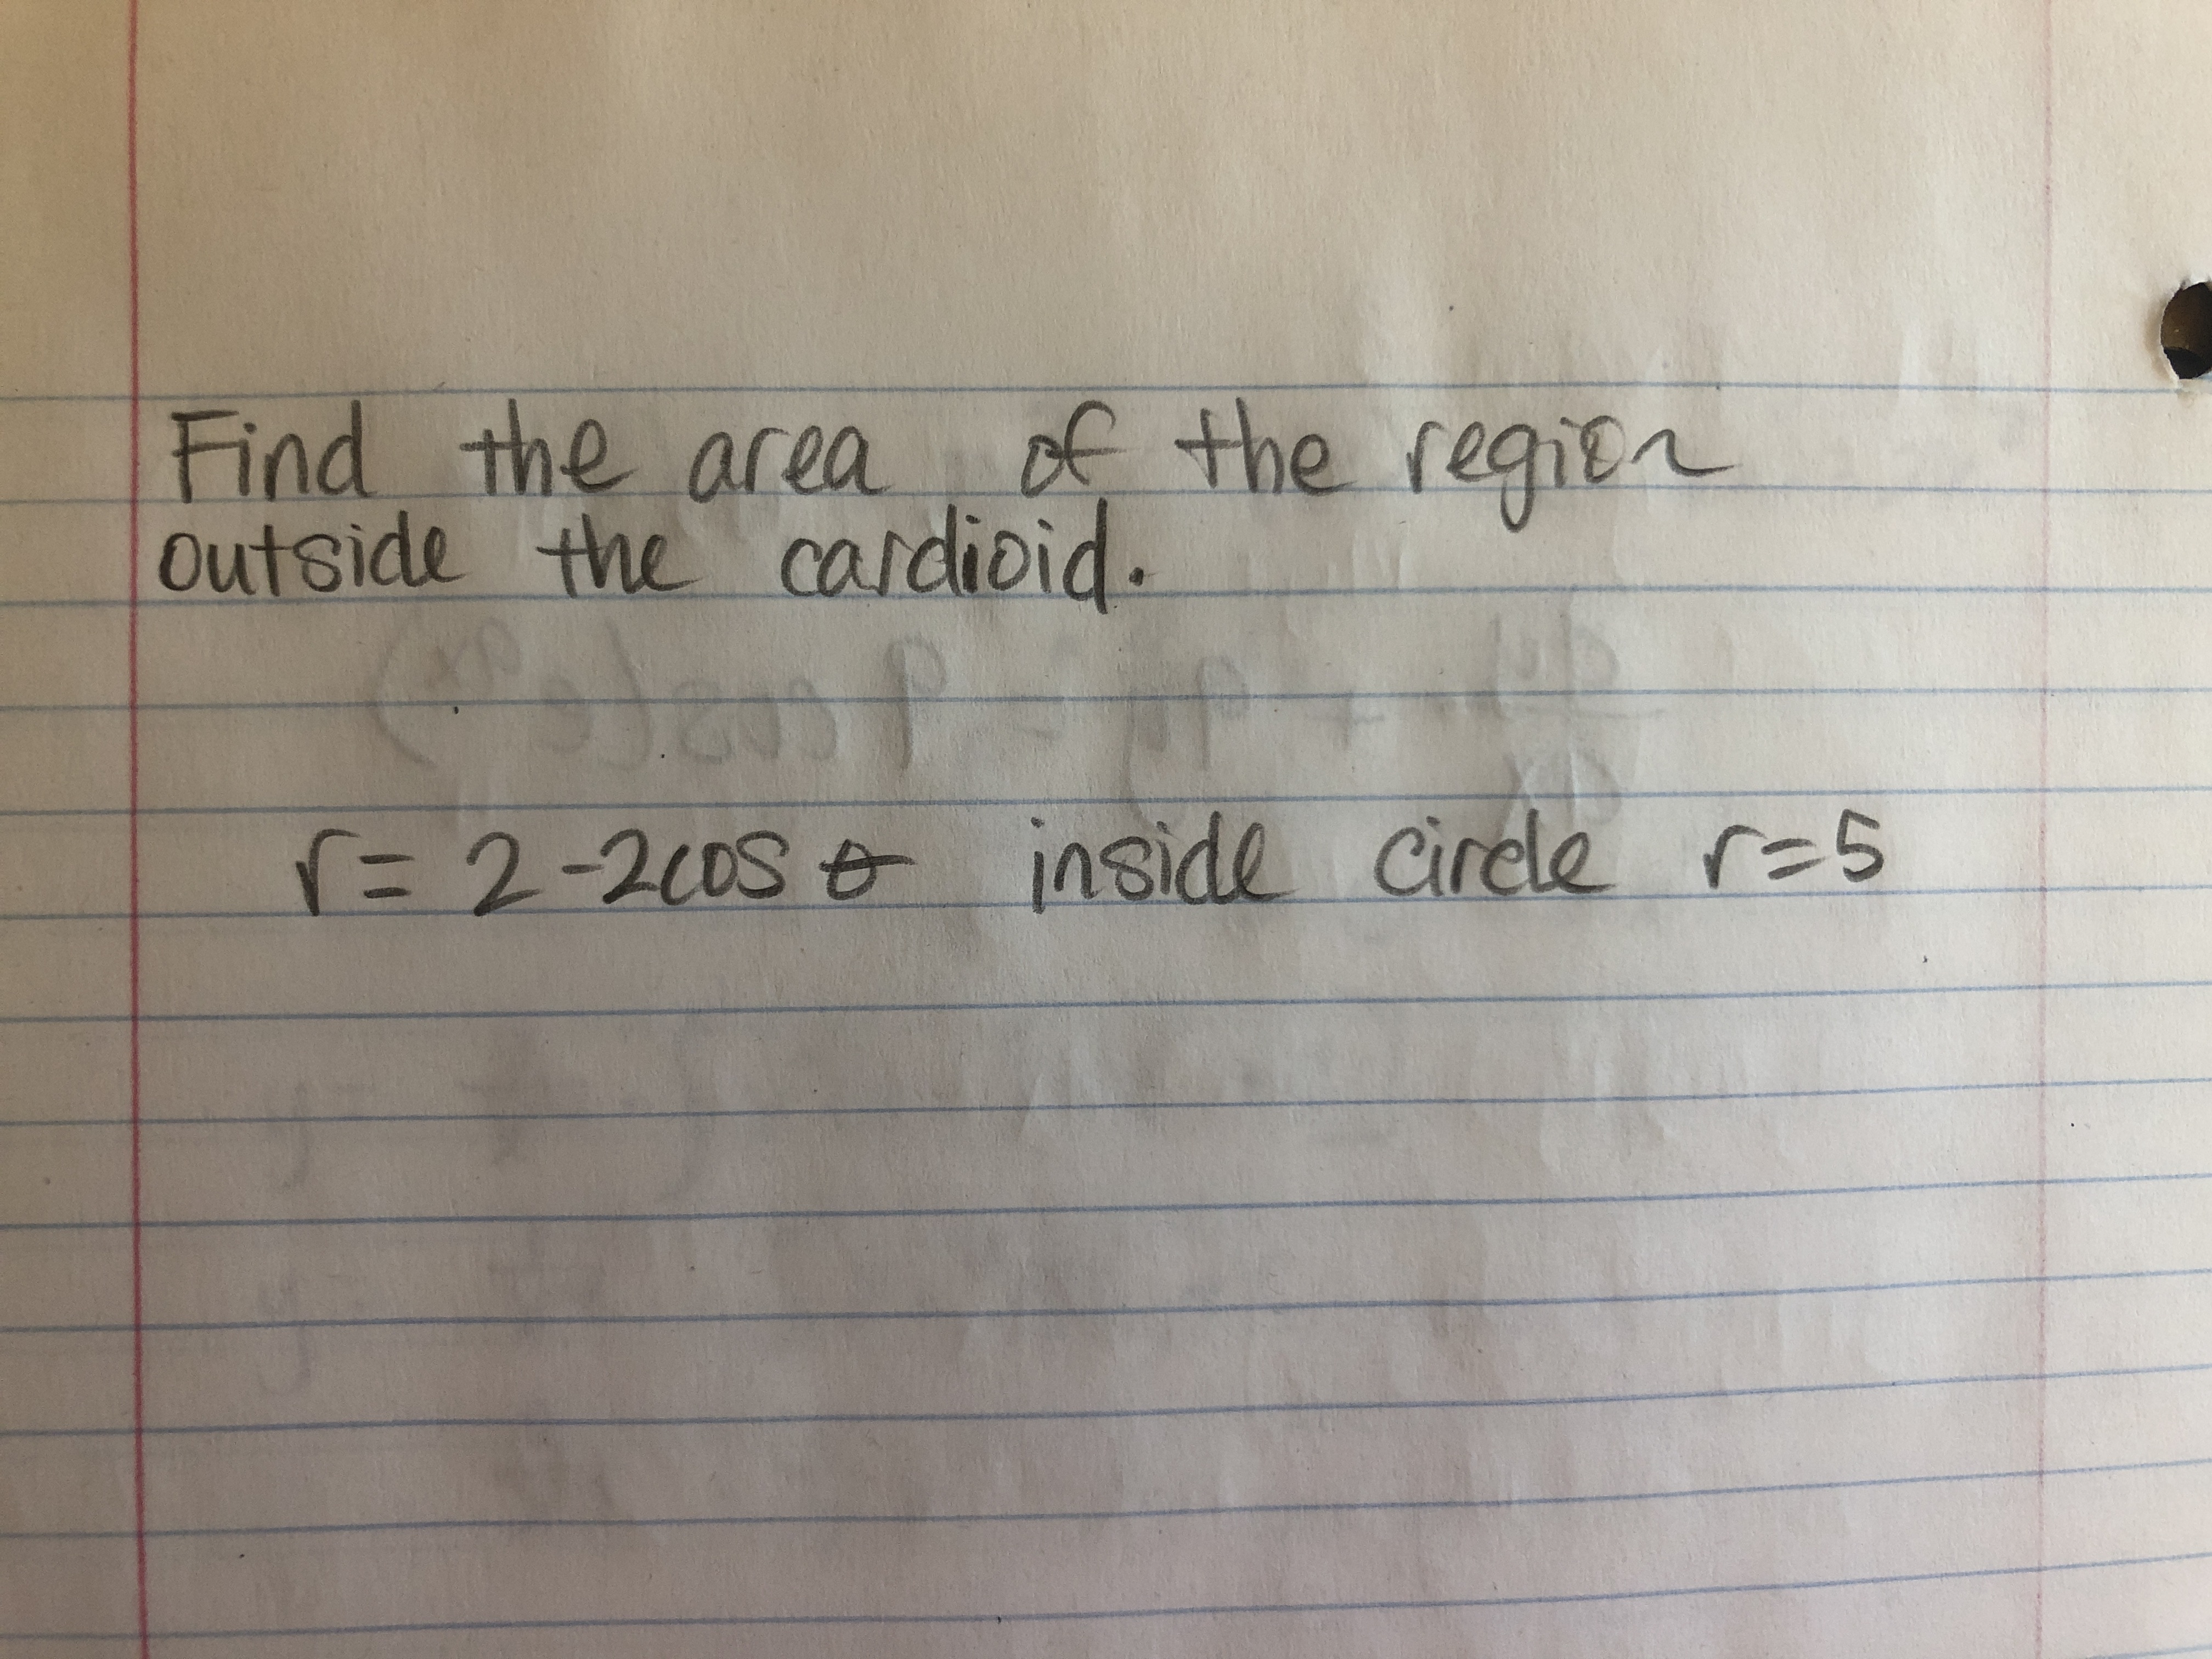 Find the area of the region
outside the cardioid.
r = 2 - 2cos θ inside circle r = 5